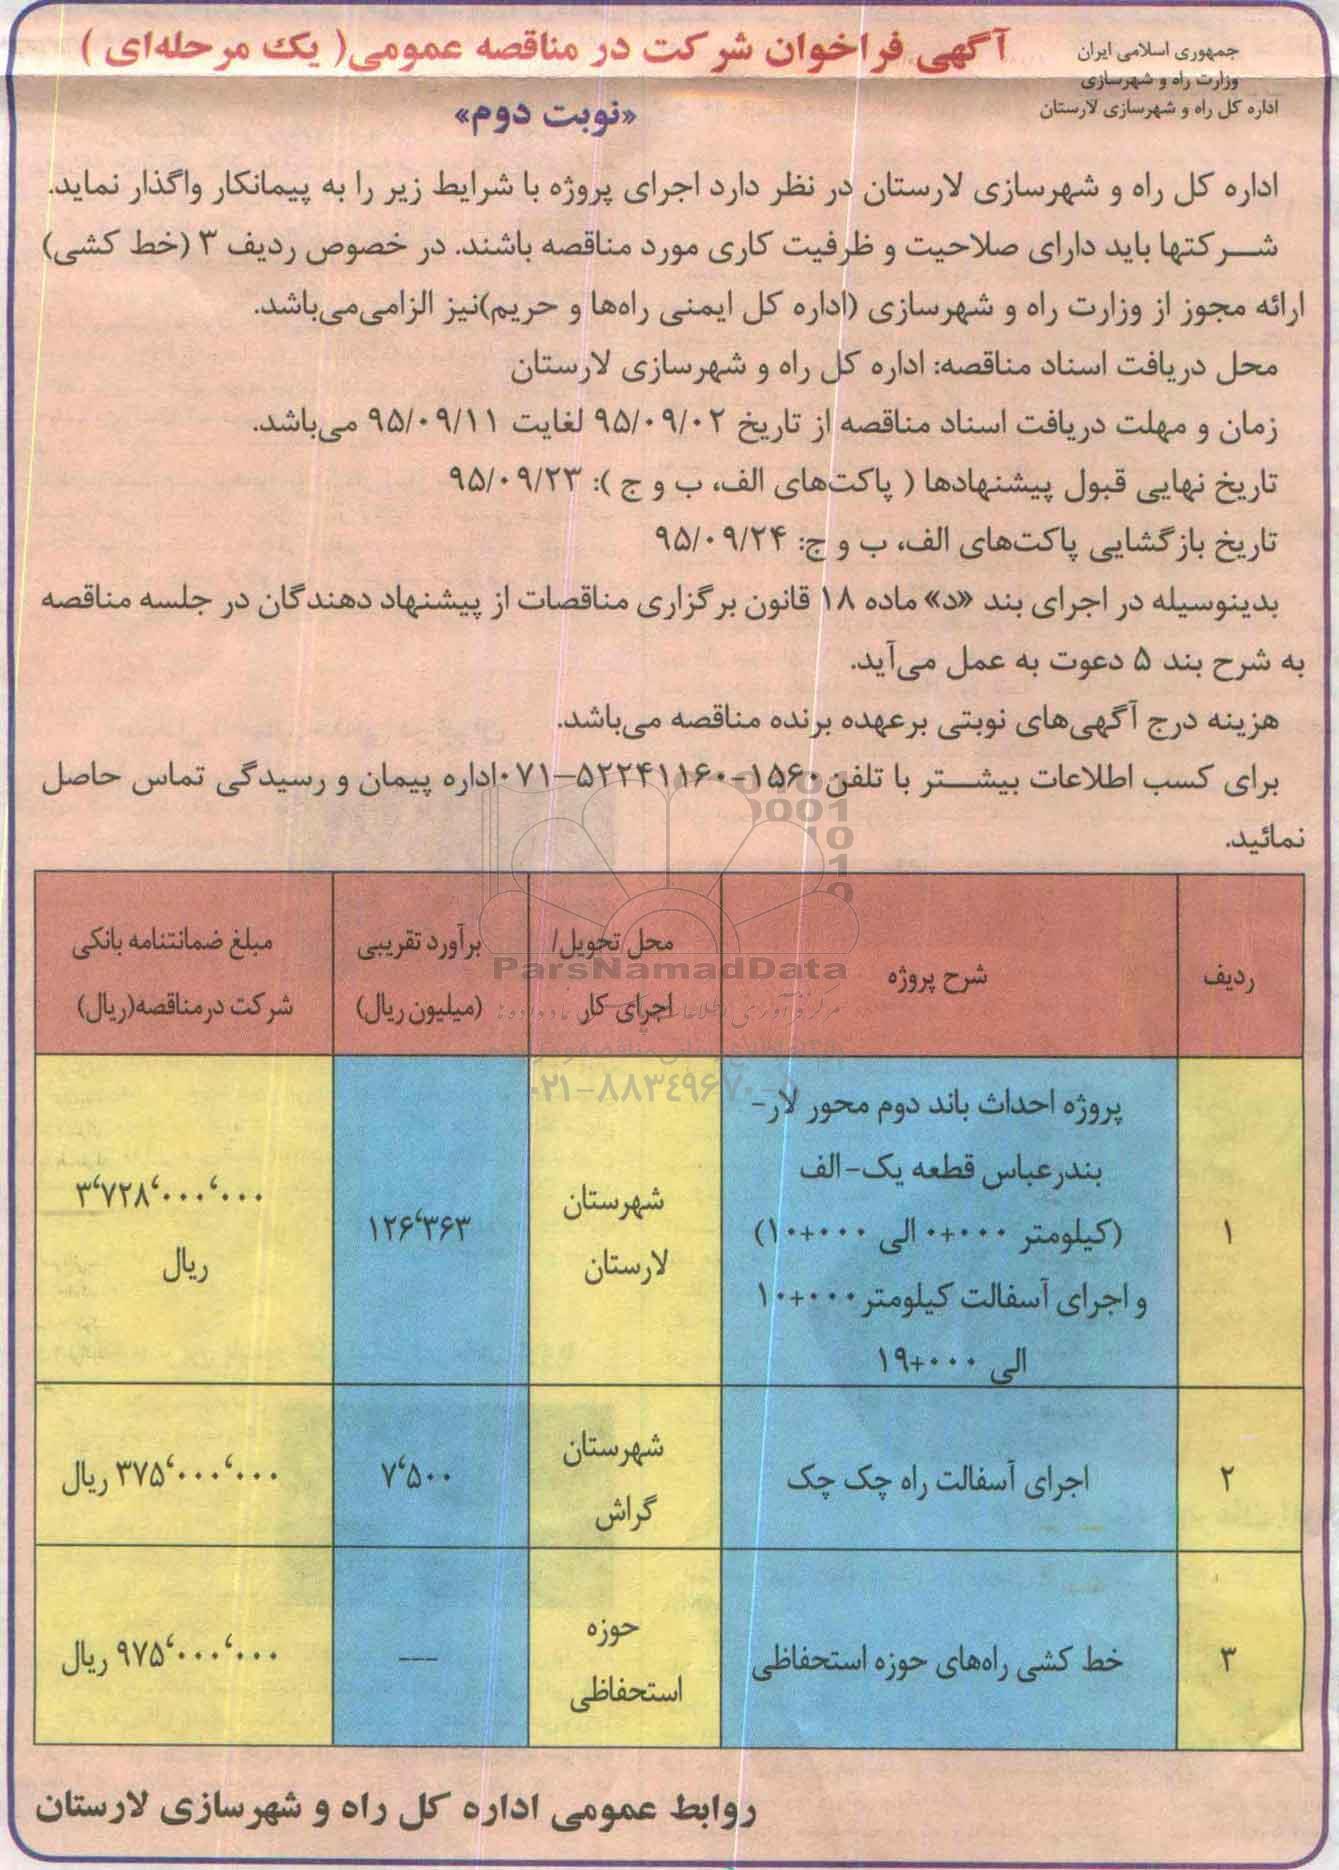 جمهوری اسلامی ایران
وزارت راه و شهرسازی
اداره کل راه و شهرسازی لارستان
آگهی فراخوان شرکت در مناقصه عمومی( یک مرحله‌ای )
«نوبت دوم»
اداره کل راه و شهرسازی لارستان در نظر دارد اجرای پروژه با شرایط زیر را به پیمانکار واگذار نماید.
شرکتها باید دارای صلاحیت و ظرفیت کاری مورد مناقصه باشند. در خصوص ردیف ۳ (خط کشی)
ارائه مجوز از وزارت راه و شهرسازی (اداره کل ایمنی راه‌ها و حریم)نیز الزامی‌می‌باشد.
محل دریافت اسناد مناقصه: اداره کل راه و شهرسازی لارستان
زمان و مهلت دریافت اسناد مناقصه از تاریخ ۹۵/۰۹/۰۲ لغایت ۹۵/۰۹/۱۱ می‌باشد.
تاریخ نهایی قبول پیشنهادها ( پاکت‌های الف، ب و ج ): ۹۵/۰۹/۲۳
تاریخ بازگشایی پاکت‌های الف، ب و ج: ۹۵/۰۹/۲۴
بدینوسیله در اجرای بند «د» ماده ۱۸ قانون برگزاری مناقصات از پیشنهاد دهندگان در جلسه مناقصه
به شرح بند ۵ دعوت به عمل می‌آید.
هزینه درج آگهی‌های نوبتی برعهده برنده مناقصه می‌باشد.
برای کسب اطلاعات بیشتر با تلفن ۱۵۶۰-۵۲۲۴۱۱۶۰–۰۷۱اداره پیمان و رسیدگی تماس حاصل
نمائید.
ردیف
شرح پروژه
محل تحویل/
اجرای کار
برآورد تقریبی
(میلیون ریال)
مبلغ ضمانتنامه بانکی
شرکت درمناقصه(ریال)
۱
پروژه احداث باند دوم محور لار-
بندرعباس قطعه یک-الف
(کیلومتر ۰۰۰+۰ الی ۰۰۰+۱۰)
و اجرای آسفالت کیلومتر۰۰۰+۱۰
الی ۰۰۰+۱۹
شهرستان
لارستان
۱۲۶٬۳۶۳
۳٬۷۲۸٬۰۰۰٬۰۰۰
ریال
۲
اجرای آسفالت راه چک چک
شهرستان
گراش
۷٬۵۰۰
۳۷۵٬۰۰۰٬۰۰۰ ریال
۳
خط کشی راه‌های حوزه استحفاظی
حوزه
استحفاظی
---
۹۷۵٬۰۰۰٬۰۰۰ ریال
روابط عمومی اداره کل راه و شهرسازی لارستان
ParsNamadData
۰۲۱-۸۸۳۴۹۶۷۰-۵